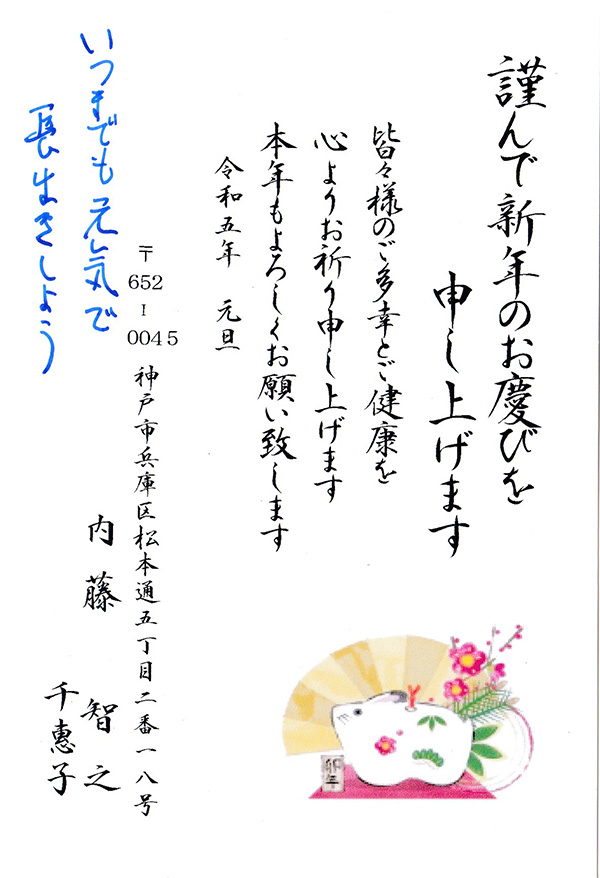 謹んで新年のお慶びを
申し上げます
皆々様のご多幸とご健康を
心よりお祈り申し上げます
本年もよろしくお願い致します
令和五年 元旦
〒652-0045
神戸市兵庫区松本通五丁目二番一八号
内藤 智之
千惠子
いつまでも元気で
長生きしよう
卯年